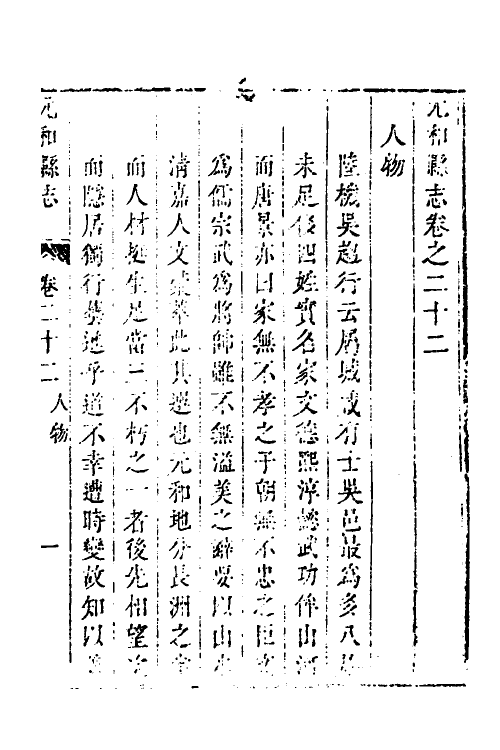 元和縣志卷之二十二
人物
陸機吳趨行云屬城咸有士吳邑最爲多八族
未足侈四姓實名家文德熙淳懿武功侔山河
而唐景亦曰家無不孝之子朝無不忠之臣文
爲儒宗武爲將帥雖不無溢美之辭要以山水
清嘉人文薈萃此其選也元和地分長洲之半
而人材挺生足當三不朽之一者後先相望
而隱居獨行 乎道不幸遭時變故知以
元和縣志 卷二十二 人物 一